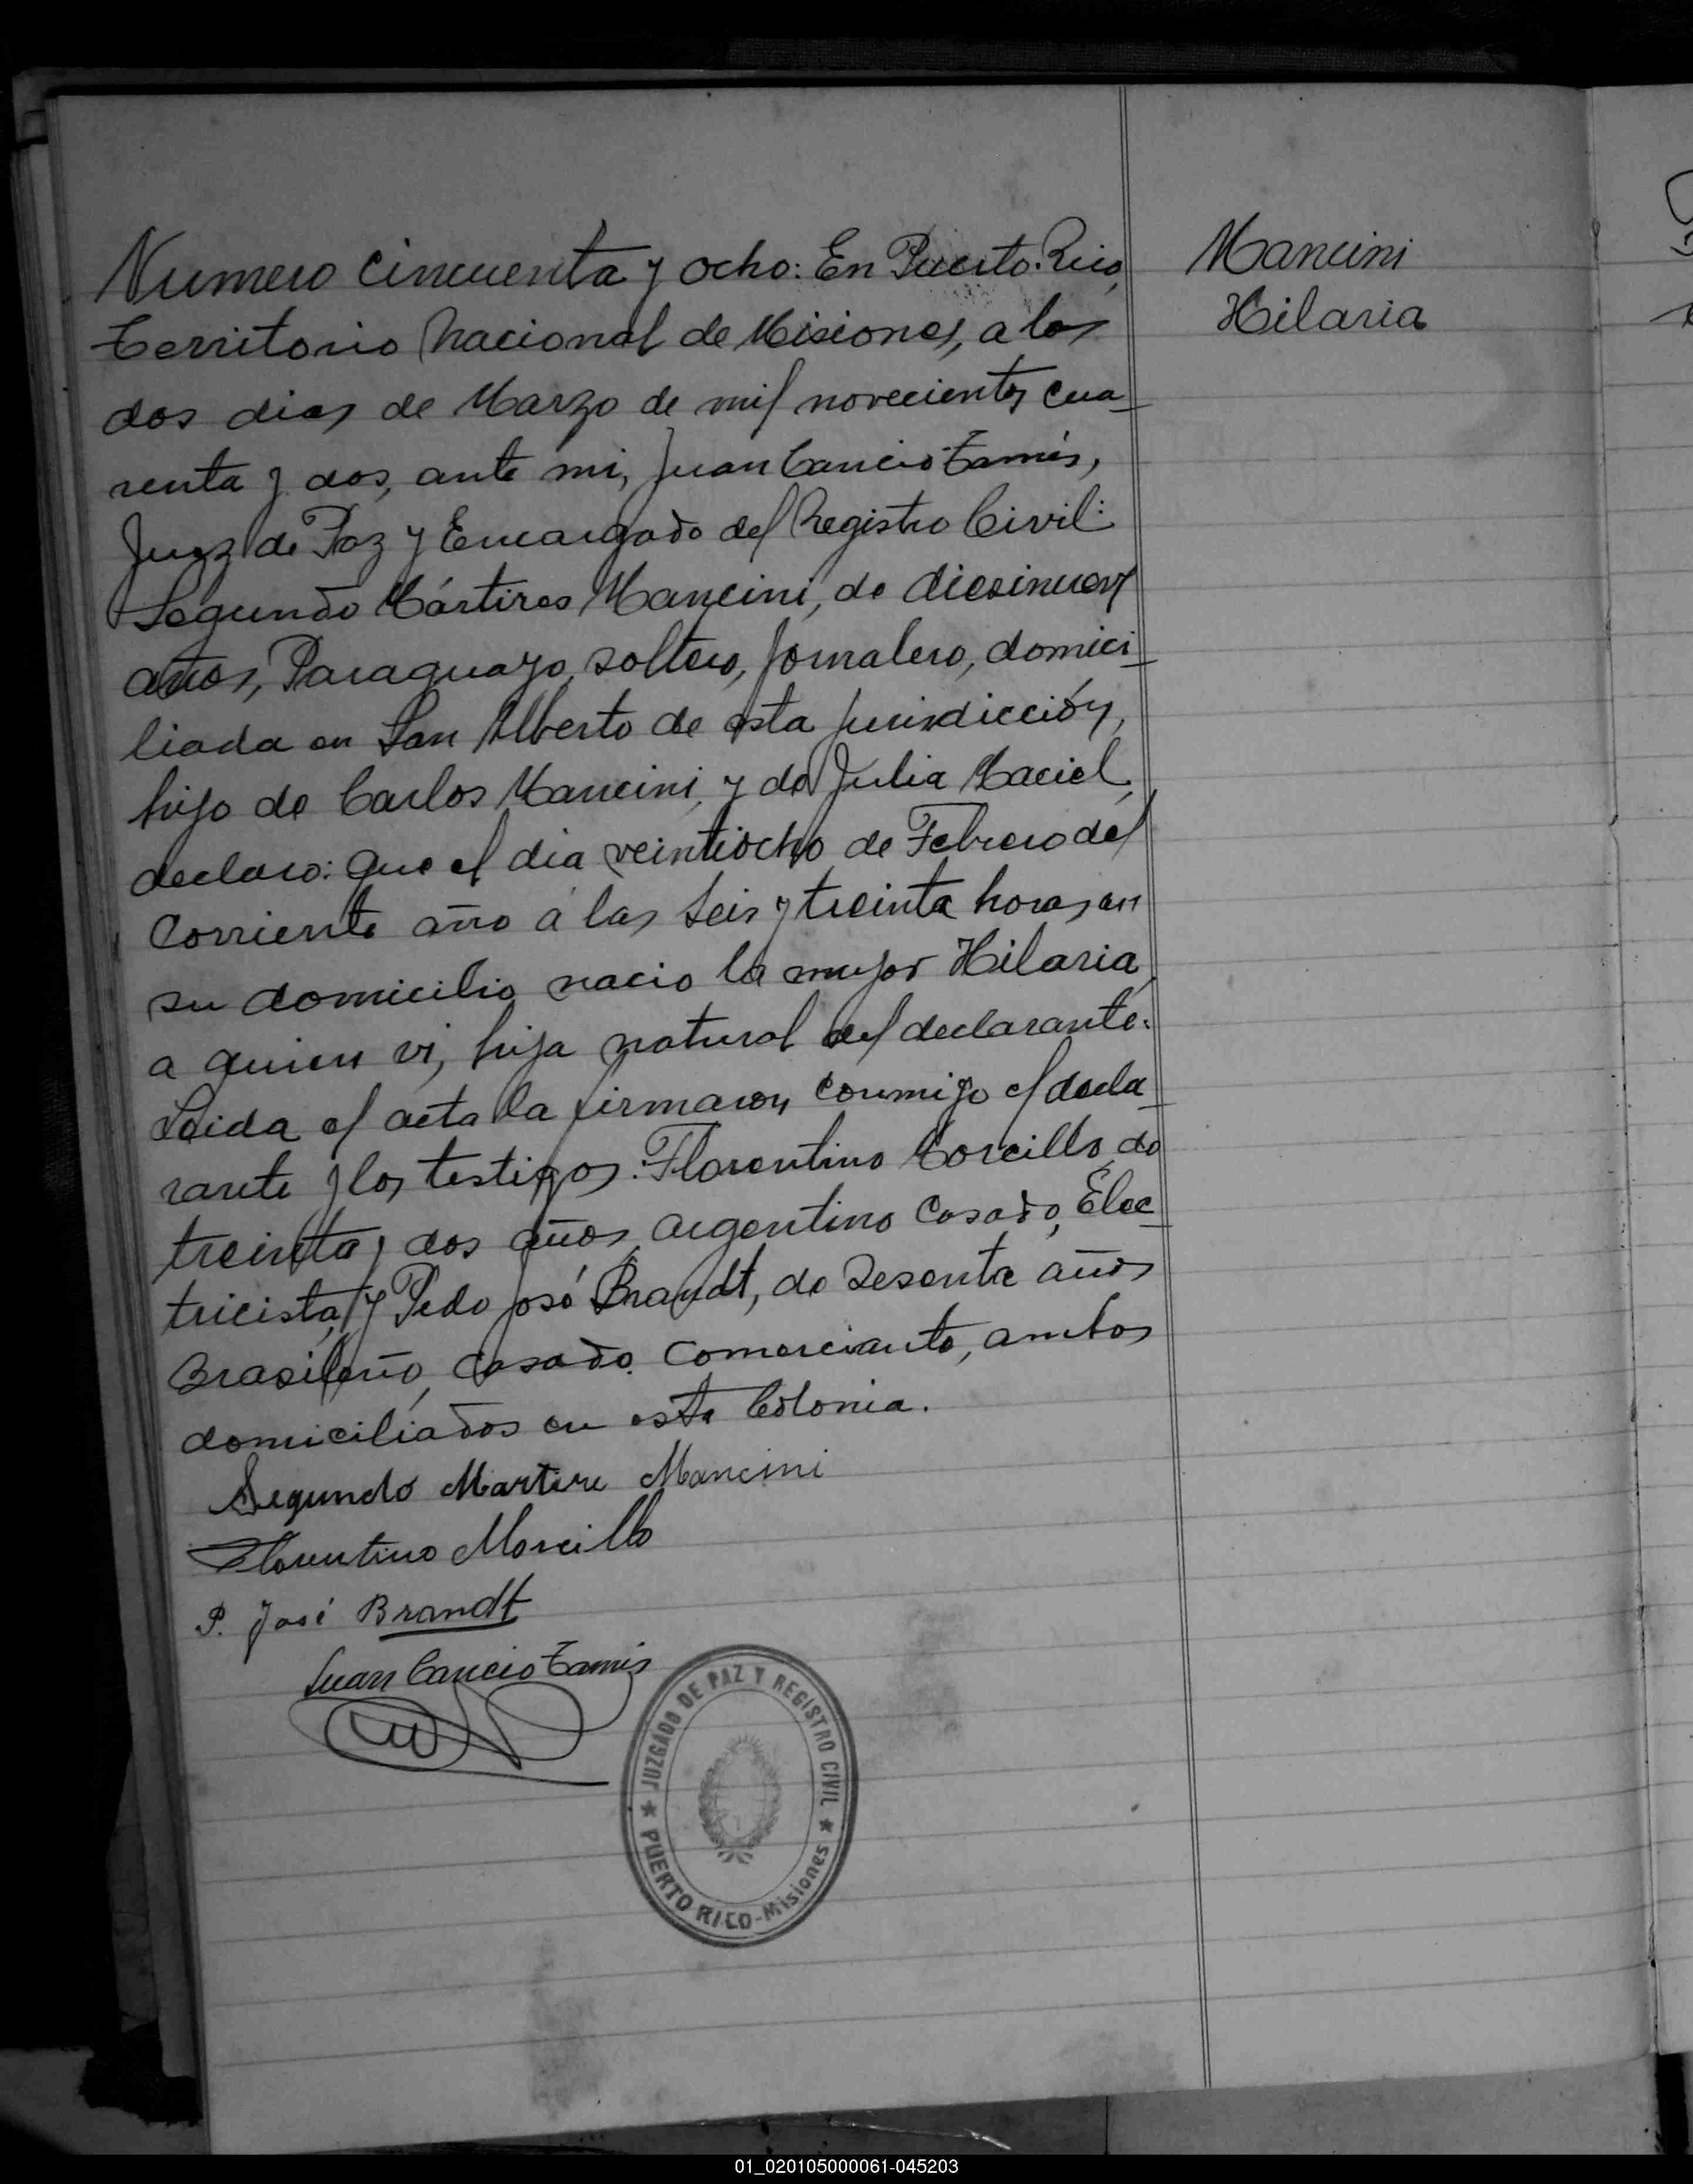 Numero cincuenta y ocho: En Puerto Rico,
Territorio Nacional de Misiones, a los
dos dias de Marzo de mil novecientos cua-
renta y dos, ante mi, Juan Cancio Tamis,
Juez de Paz y Encargado del Registro Civil:
Segundo Mártires Mancini, de diesinueve
años, Paraguayo, soltero, Jornalero, domici-
liada en San Alberto de esta Jurisdicción,
hijo de Carlos Mancini, y de Julia Maciel,
declaro: que el dia veintiocho de Febrero del
corriente año á las seis y treinta horas, en
su domicilio, nacio la mujer Hilaria,
a quien vi, hija natural del declarante.
Leida el acta la firmaron conmigo el decla-
rante y los testigos: Florentino Morcillo, de
treinta y dos años, argentino casado, Elec-
tricista, y Pedo José Brandt, de sesenta años
Brasileño, casado, comerciante, ambos
domiciliados en esta Colonia.
Segundo Martire Mancini
Florentino Morcillo
P. José Brandt
Juan Cancio Tamis
JUZGADO DE PAZ Y REGISTRO CIVIL
PUERTO RICO-Misiones
Mancini
Hilaria
01_020105000061-045203